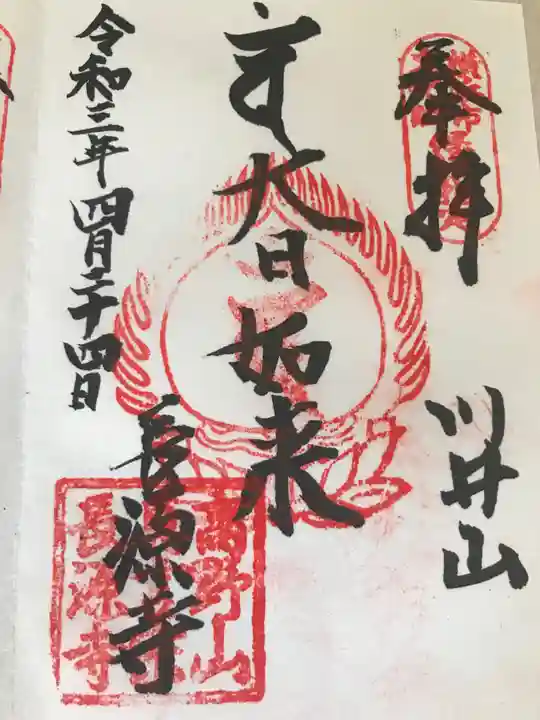 奉拝
川井山
大日如来
長源寺
令和三年四月二十四日
高野山
長源寺